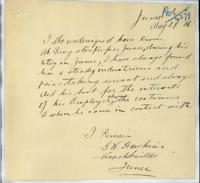 Junee
May 29 06
I the undersigned have known
Ah Ling storekeeper Junee, during his
stay in Junee, I have always found
him a steady industrious and
painstaking servant and always
did his best for the interests
of his Employer, the customers
whom he came in contact with
I Remain
G. W. Hawkins
Coachbuilder
Junee